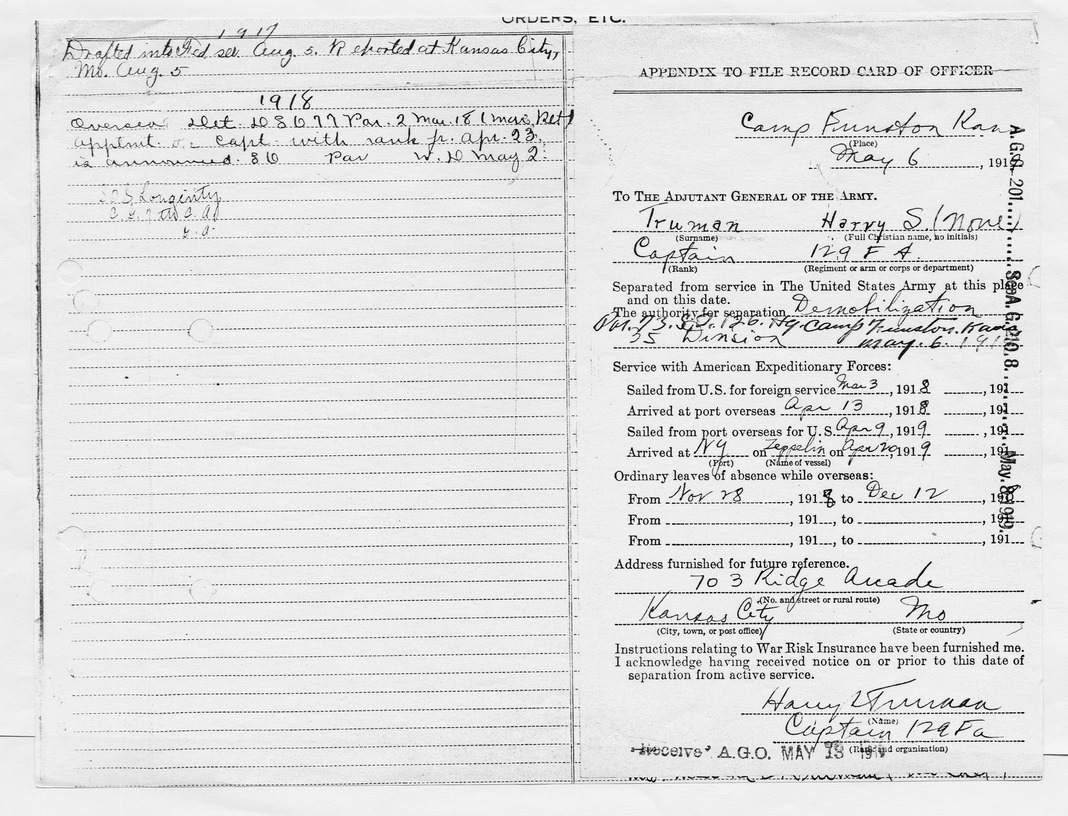 ORDERS, ETC.
1917
Drafted into Fed ser Aug. 5. Reported at Kansas City,
Mo. Aug. 5
1918
Oversea Det. D S O 77 Par. 2 Mar. 18
appmt. Capt. with rank fr. Apr. 23,
is announced. S O Par W. D May 2
Longevity
APPENDIX TO FILE RECORD CARD OF OFFICER
Camp Funston Kans
(Place)
May 6, 191
TO THE ADJUTANT GENERAL OF THE ARMY.
Truman Harry S. (None)
(Surname) (Full Christian name, no initials)
Captain 129 F A.
(Rank) (Regiment or arm or corps or department)
Separated from service in The United States Army at this place
and on this date.
The authority for separation Demobilization
Par. 73. S.O. 126. Hq. Camp Funston. Kans
35 Division May. 6. 191
Service with American Expeditionary Forces:
Sailed from U.S. for foreign service Mar 3, 1918 , 191
Arrived at port overseas Apr 13, 1918 , 191
Sailed from port overseas for U.S. Apr 9, 1919 , 191
Arrived at NY on Zeppelin on Apr 20, 1919 , 191
(Port) (Name of vessel)
Ordinary leaves of absence while overseas:
From Nov 28, 1918 to Dec 12, 191
From , 191 , to , 191
From , 191 , to , 191
Address furnished for future reference.
703 Ridge Arcade
(No. and street or rural route)
Kansas City Mo
(City, town, or post office) (State or country)
Instructions relating to War Risk Insurance have been furnished me.
I acknowledge having received notice on or prior to this date of
separation from active service.
Harry S Truman
(Name)
Captain 129 Fa
(Rank and organization)
Receive A.G.O. MAY 13 1919
A.G.O. 201 S.C.A.G.O. May 8 1919.